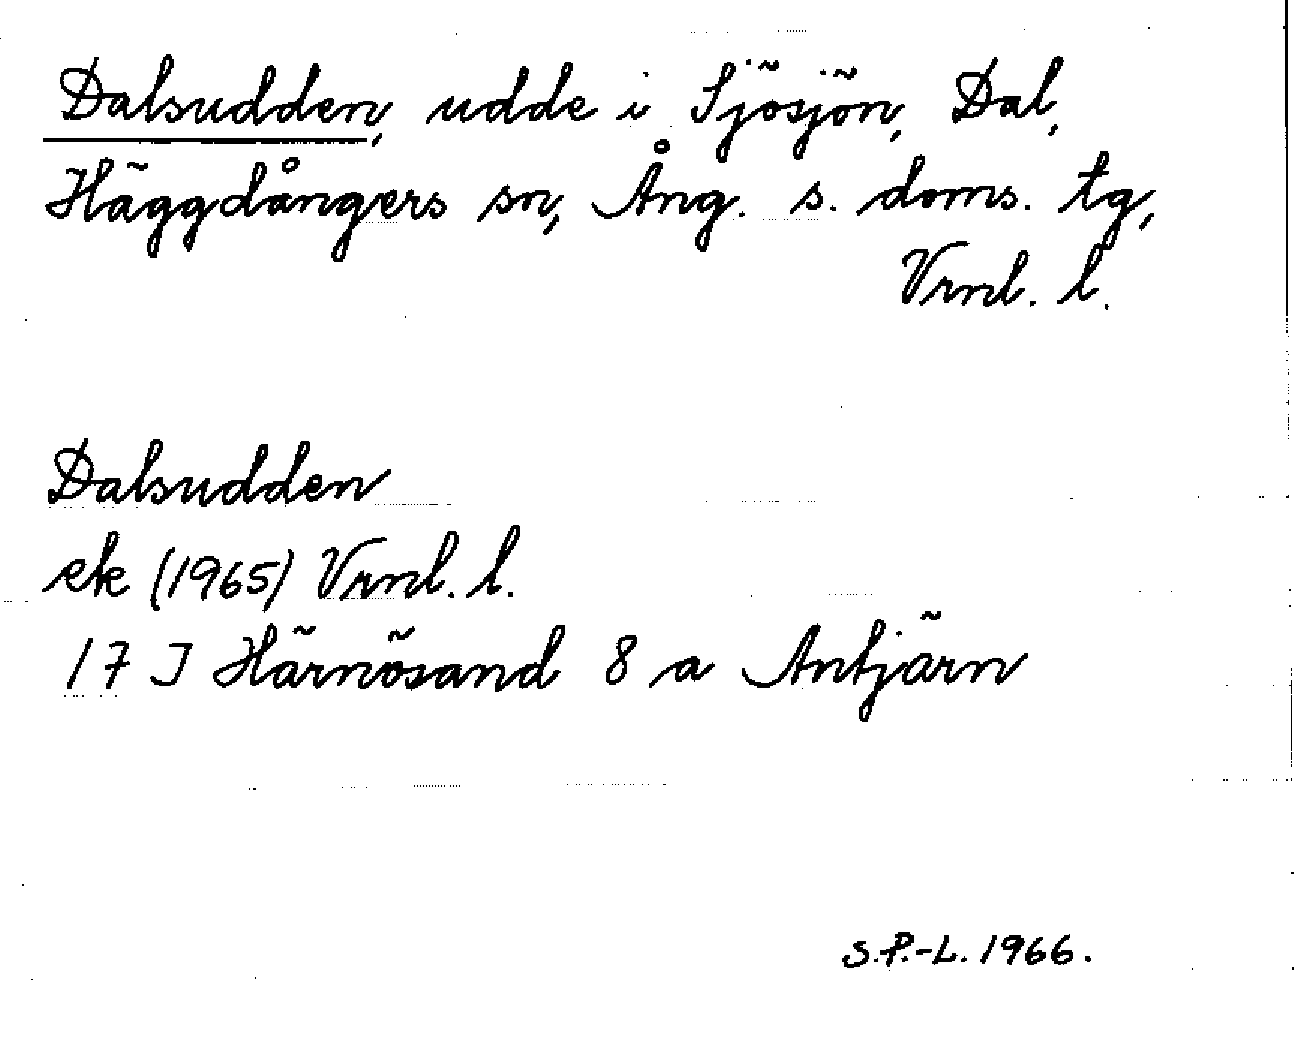 Dalsudden, udde i Sjösjön, Dal,
Häggdångers sn, Ång. s. doms. tg,
Vrnl. l.
Dalsudden
ek (1965) Vrnl. l.
17 I Härnösand 8 a Antjärn
S.P.-L. 1966.